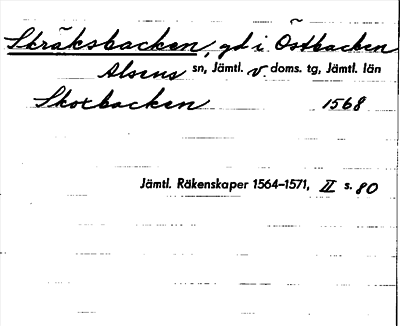 Skräksbacken, gd i Östbacken
Alsens sn, Jämtl. v. doms. tg, Jämtl. län
Skoxbacken 1568
Jämtl. Räkenskaper 1564–1571, II s. 80